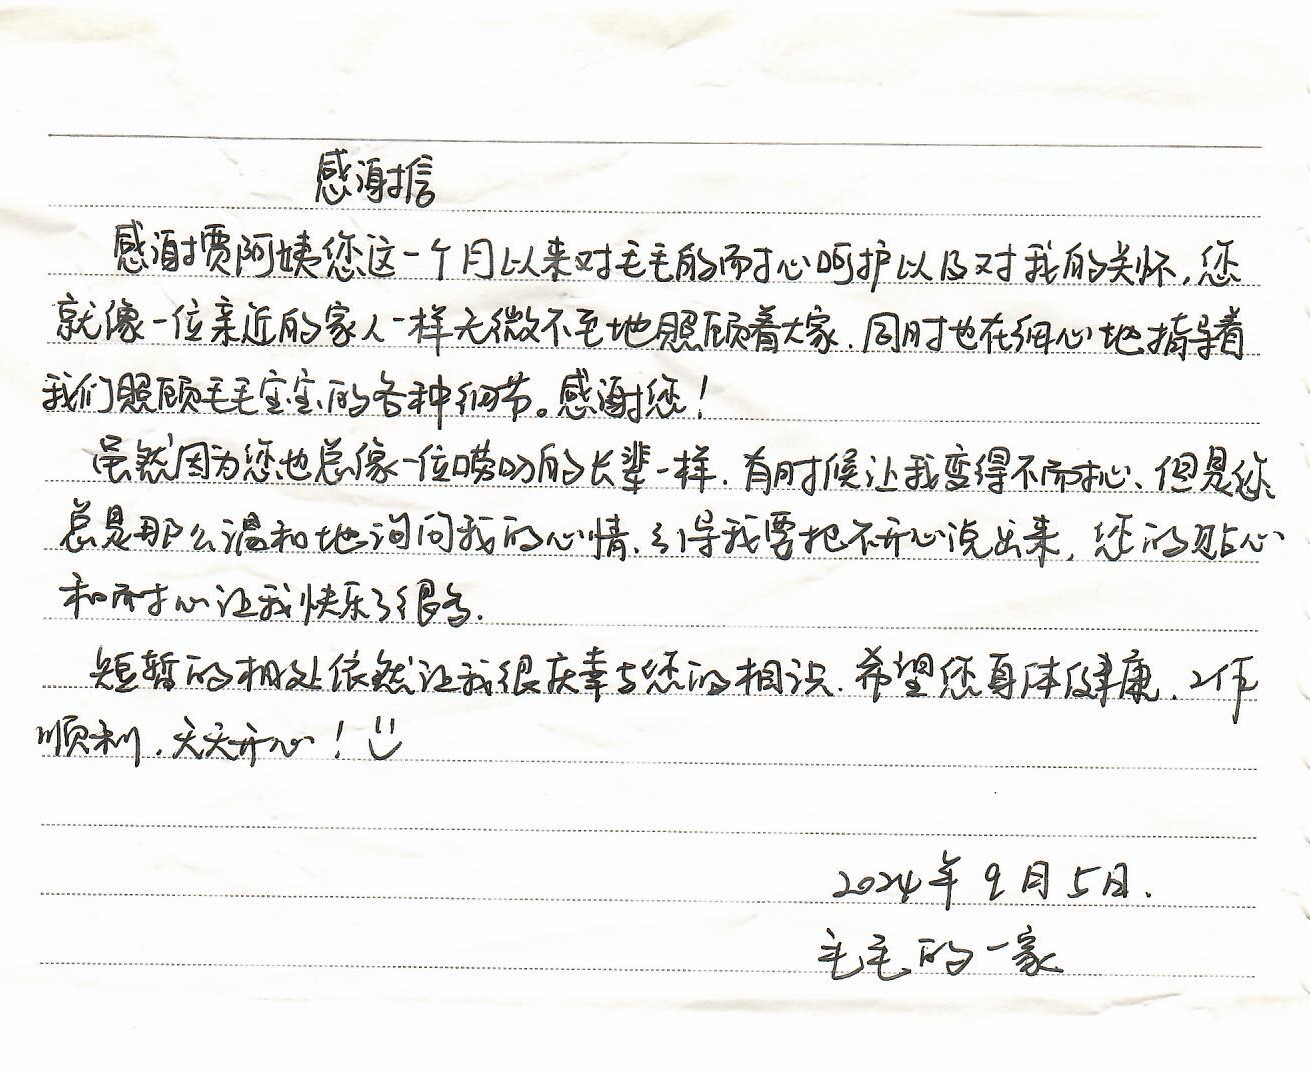 感谢信
感谢贾阿姨您这一个月以来对毛毛的耐心呵护以及对我的关怀，您
就像一位亲近的家人一样无微不至地照顾着大家．同时也在细心地指导着
我们照顾毛毛宝宝的各种细节。感谢您！
虽然因为您也总像一位唠叨的长辈一样．有时候让我变得不耐心、但是您
总是那么温和地询问我的心情、引导我要把不开心说出来，您的贴心
和耐心让我快乐了很多．
短暂的相处依然让我很庆幸与您的相识．希望您身体健康．工作
顺利．天天开心！
2024年9月5日．
毛毛的一家